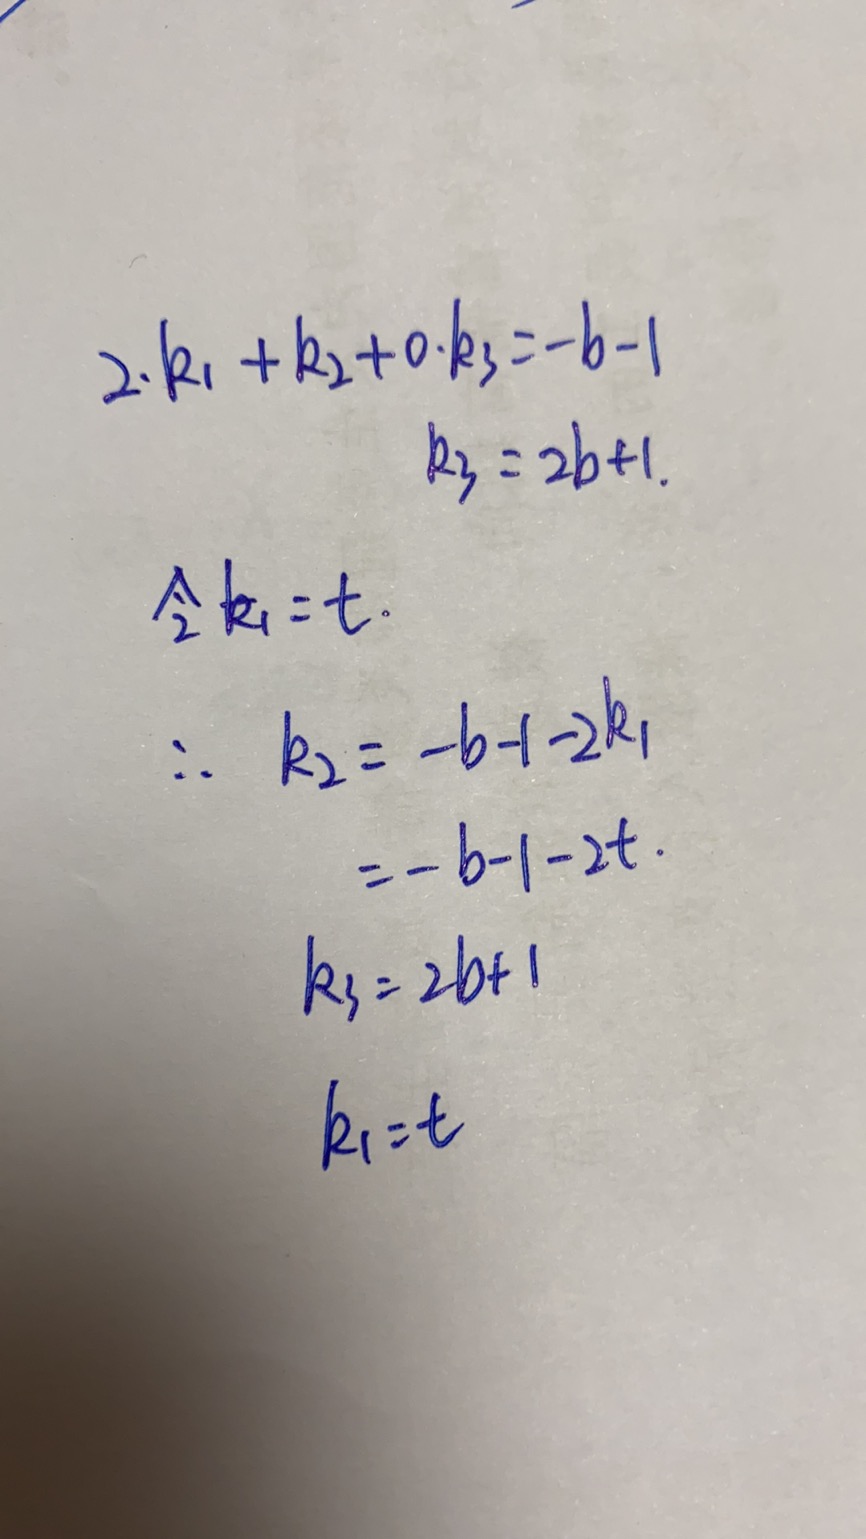 2·k₁+k₂+0·k₃=-b-1
k₃=2b+1.
令k₁=t.
∴ k₂=-b-1-2k₁
=-b-1-2t.
k₃=2b+1
k₁=t